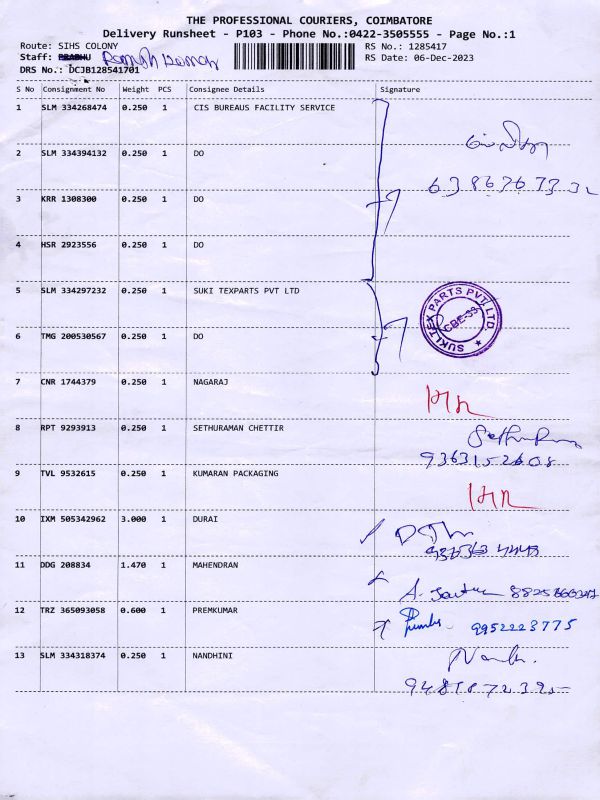 THE PROFESSIONAL COURIERS, COIMBATORE
Delivery Runsheet - P103 - Phone No.:0422-3505555 - Page No.:1
Route: SIHS COLONY RS No.: 1285417
Staff: PRABHU Ramesh Kumar RS Date: 06-Dec-2023
DRS No.: DCJB128541701
S No Consignment No Weight PCS Consignee Details Signature
1 SLM 334268474 0.250 1 CIS BUREAUS FACILITY SERVICE
2 SLM 334394132 0.250 1 DO
3 KRR 1308300 0.250 1 DO
4 HSR 2923556 0.250 1 DO
5 SLM 334297232 0.250 1 SUKI TEXPARTS PVT LTD
SUKI TEX PARTS PVT. LTD.
CBE-33
6 TMG 200530567 0.250 1 DO
7 CNR 1744379 0.250 1 NAGARAJ
8 RPT 9293913 0.250 1 SETHURAMAN CHETTIR
9363152608
9 TVL 9532615 0.250 1 KUMARAN PACKAGING
10 IXM 505342962 3.000 1 DURAI
11 DDG 208834 1.470 1 MAHENDRAN
12 TRZ 365093058 0.600 1 PREMKUMAR 9952223775
13 SLM 334318374 0.250 1 NANDHINI